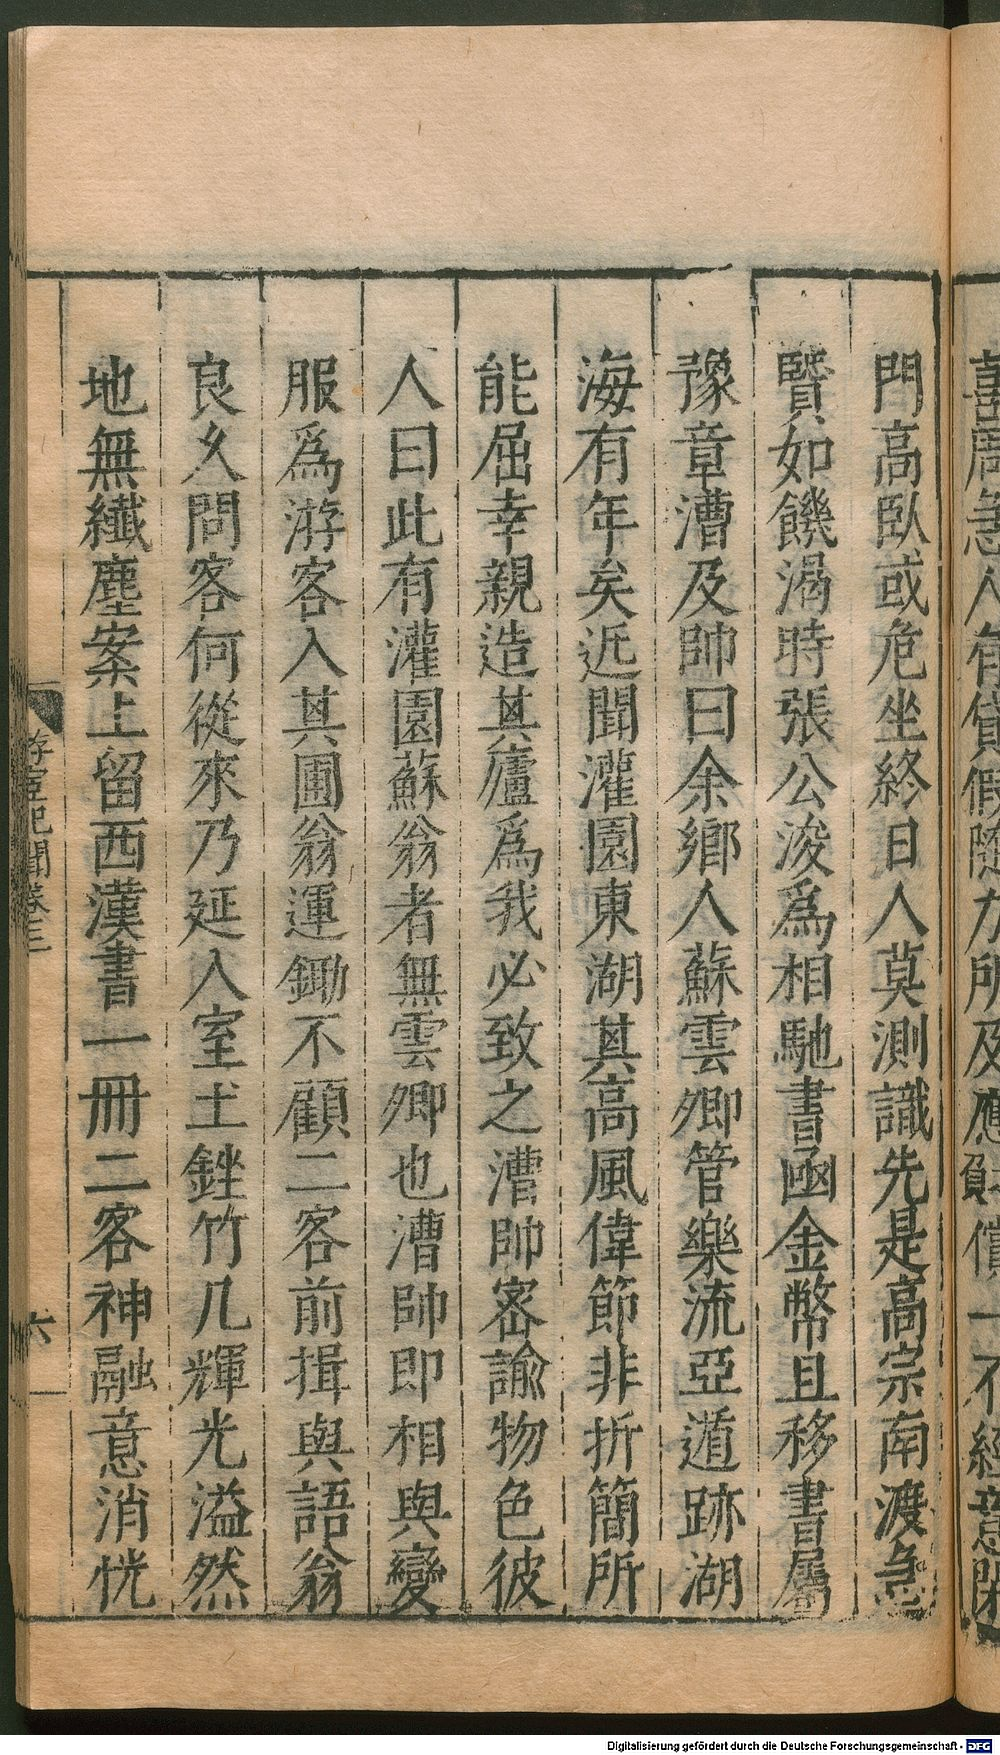 喜周急人有貸假隨力所及應負償一不經意閉
門高臥或危坐終日人莫測識先是高宗南渡急
賢如饑渴時張公浚爲相馳書函金幣且移書屬
豫章漕及帥曰余鄉人蘇雲卿管樂流亞遁跡湖
海有年矣近聞灌園東湖其高風偉節非折簡所
能屈幸親造其廬爲我必致之漕帥密諭物色彼
人曰此有灌園蘇翁者無雲卿也漕帥即相與變
服爲游客入其圃翁運鋤不顧二客前揖與語翁
良久問客何從來乃延入室土銼竹几輝光溢然
地無纖塵案上留西漢書一冊二客神融意消恍
紀聞卷三
六
Digitalisierung gefördert durch die Deutsche Forschungsgemeinschaft - DFG